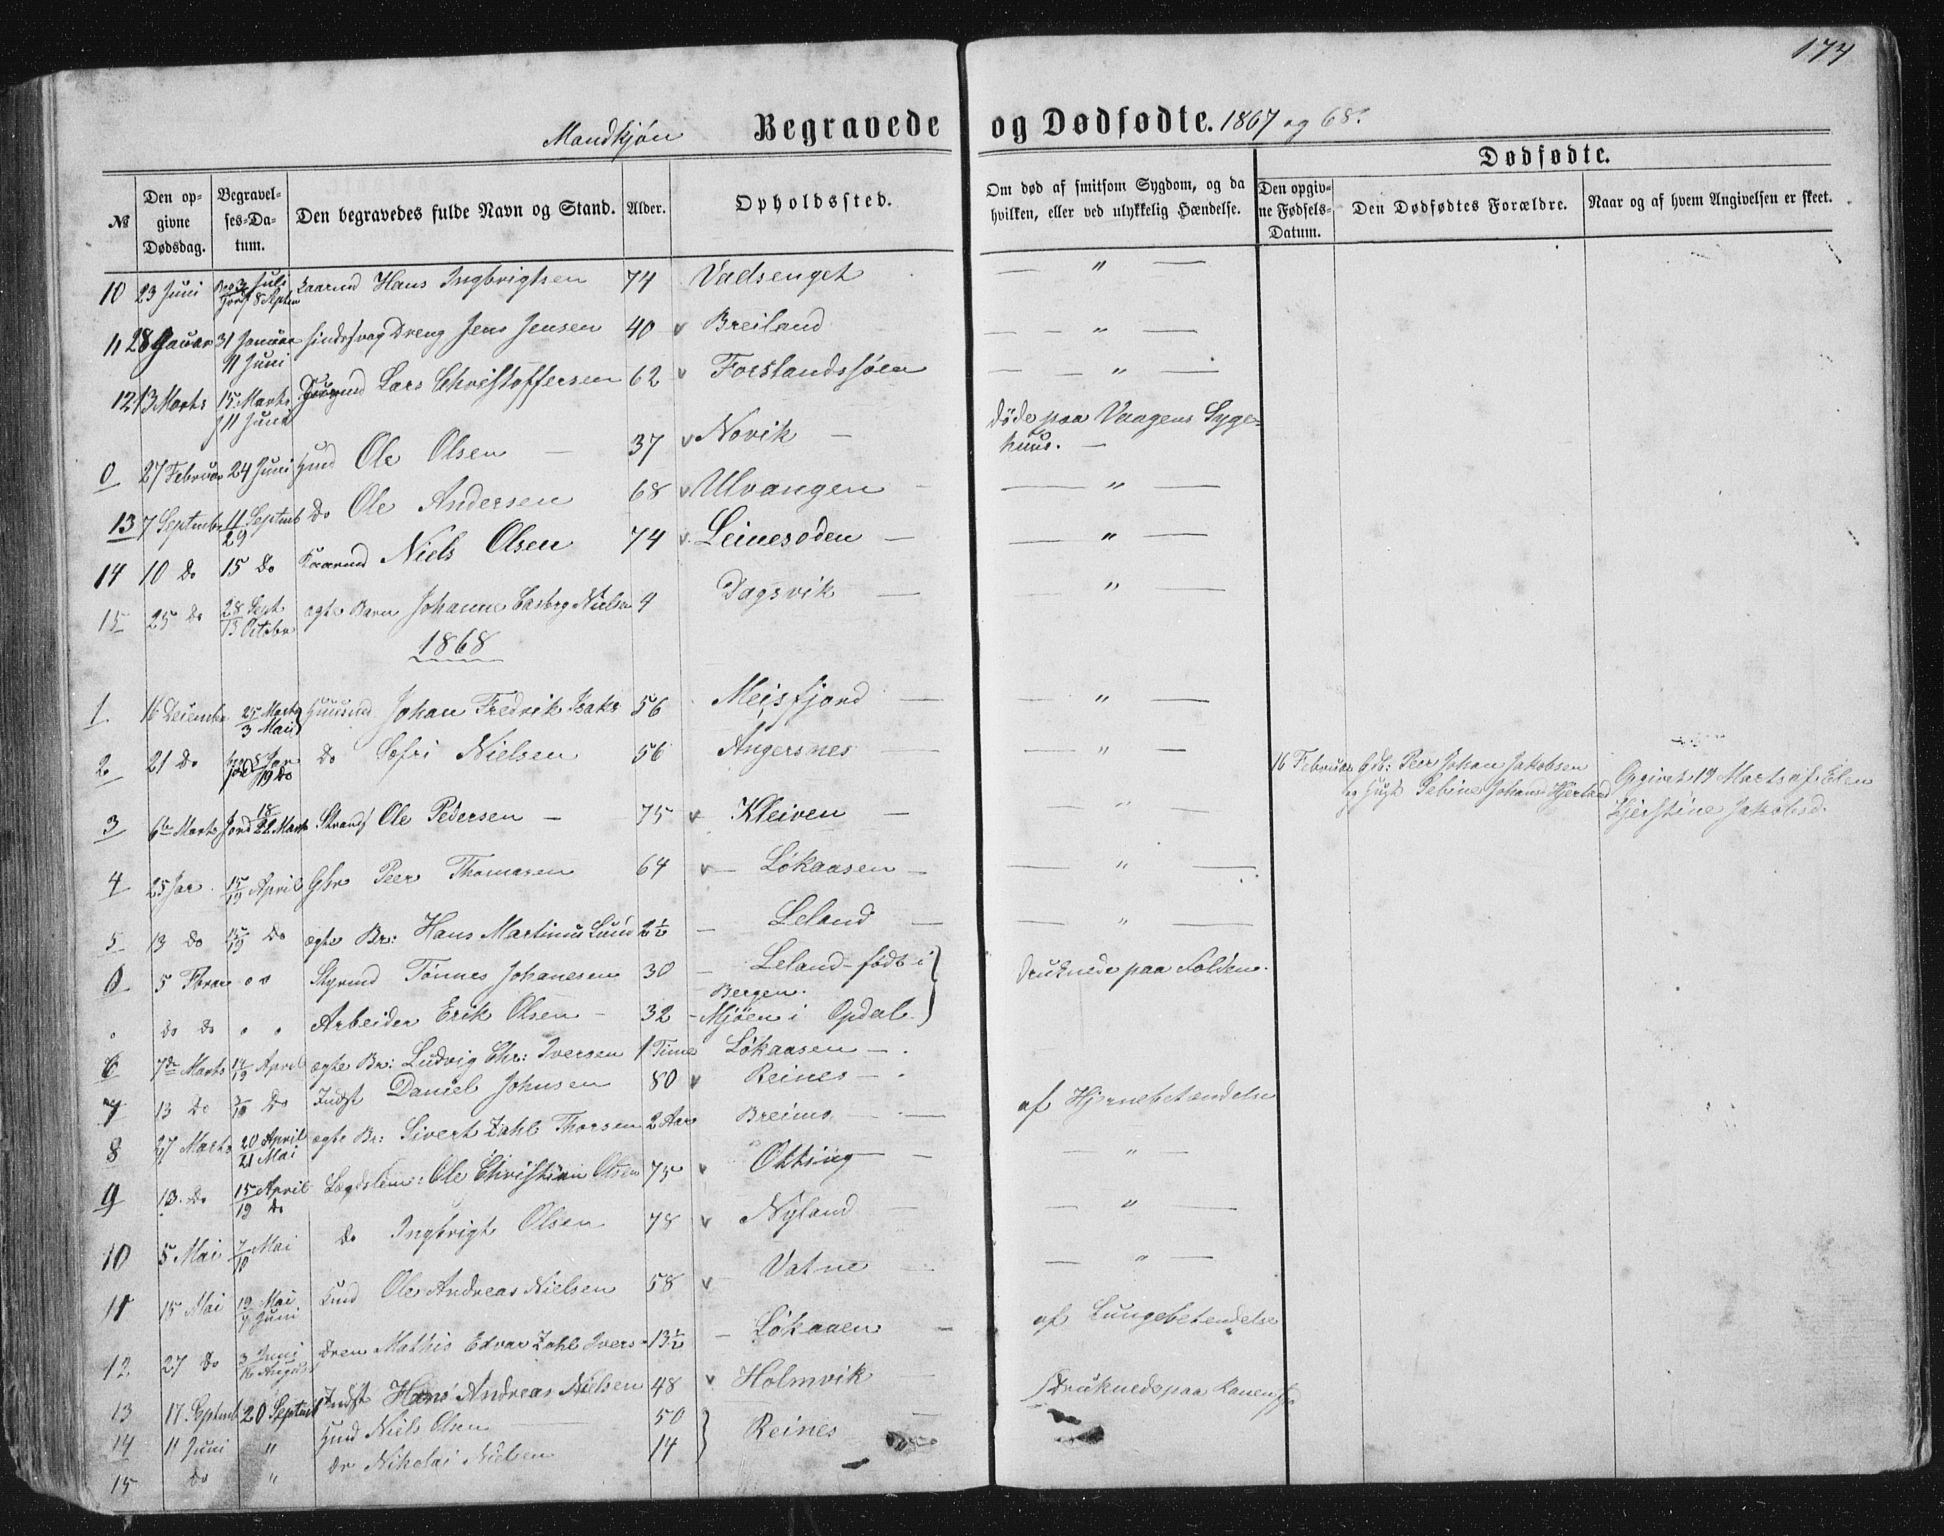 174
Mandkjøn Begravede og Dødfødte. 1867 og 68.
Dødfødte.
№ Den opgivne Dødsdag. Begravelses-Datum. Den begravedes fulde Navn og Stand. Alder. Opholdssted. Om død af smitsom Sygdom, og da hvilken, eller ved ulykkelig Hændelse. Den opgivne Fødsels-Datum. Den Dødfødtes Forældre. Naar og af hvem Angivelsen er skeet.
10 23 Juni Juli Kaarmd Hans Ingbrigtsen 74 Vadsenget — " —
11 28 Januar 31 Januar 11 Juni sindssvag Dreng Jens Jensen 40 v Breiland — " —
12 13 Marts 15 Marts 11 Juni Lars Christoffersen 62 v Forslandssøen — " —
0 27 Februar 24 Juni Hmd Ole Olsen — 37 v Novik — døde paa Vaagens Sygehuus. —
13 7 Septembr 11/29 Septemb Do Ole Andersen 68 v Ulvangen — — " —
14 10 Do 15 Do Kaarmd Niels Olsen 74 v Leinesoden — — " —
15 25 Do 28 Sept 13 Octobr ægte Barn Johann Nielsen 4 Dagsvik — — " —
1868
1. 16 Decembr 25 Marts 3 Mai Huusmd Johan Fredrik Isaks 56 Meisfjord — — " —
2 21 Do Do Sefri Nielsen 56 Angersnes — — " — 16 Februar Gdb: Peer Johan Jakobsen og Hust Johans Hjertaas Opgivet 19 Marts af Elen Kjerstine Jakobsd.
3 6te Marts Jord 18/22 Marts Strands Ole Pedersen — 75 v Kleiven — — " —
4 25 Jar 15/19 April Gbr Peer Thomasen 64 v — Løkaasen — — " —
5 13 Do 15/19 Do ægte Br: Hans Martinus Lund 2½ — Leland — — " —
0 5 Fbrar o o Styrmd Tønnes Johanesen 30 — Leland — født i Bergen. Druknede paa Folden.
" do do " " Arbeider Erik Olsen — 32 — Mjøen i Opdal.
6 7de Marts 14/19 April ægte Br: Ludvig Chr: Iversen 1 Time Løkaasen — .
7 13 Do Do Indst Daniel Johnsen 80 v Reines —
8 27 Marts 20 April 21 Mai ægte Br: Sivert Zahl Thorsen 2 Aar Breimo — — af Hjernebetændelse
9 13 Do 15 April 19 Do Lægdslem: Ole Christian Olsen 75 v Okting — — — " —
10 5 Mai 7/10 Mai do Ingbrigt Olsen 78 v Nyland — — " —
11 15 Mai 19 Mai 7 Juni Kmd Ole Andreas Nielsen 58 v Vatne — — " —
12 27 Do 3 Juni 16 August Dren Mathis Edvar Zahl Ivers 13½ — Løkaaen — af Lungebetændelse
13 17 Septemb 20 Septemb Indst Hans Andreas Nielsen 48 v Holmvik —
14 11 Juni " Hmd Niels Olsen — 50 Reines — Druknede paa
15 do " Dr Nikolai Nielsen 14